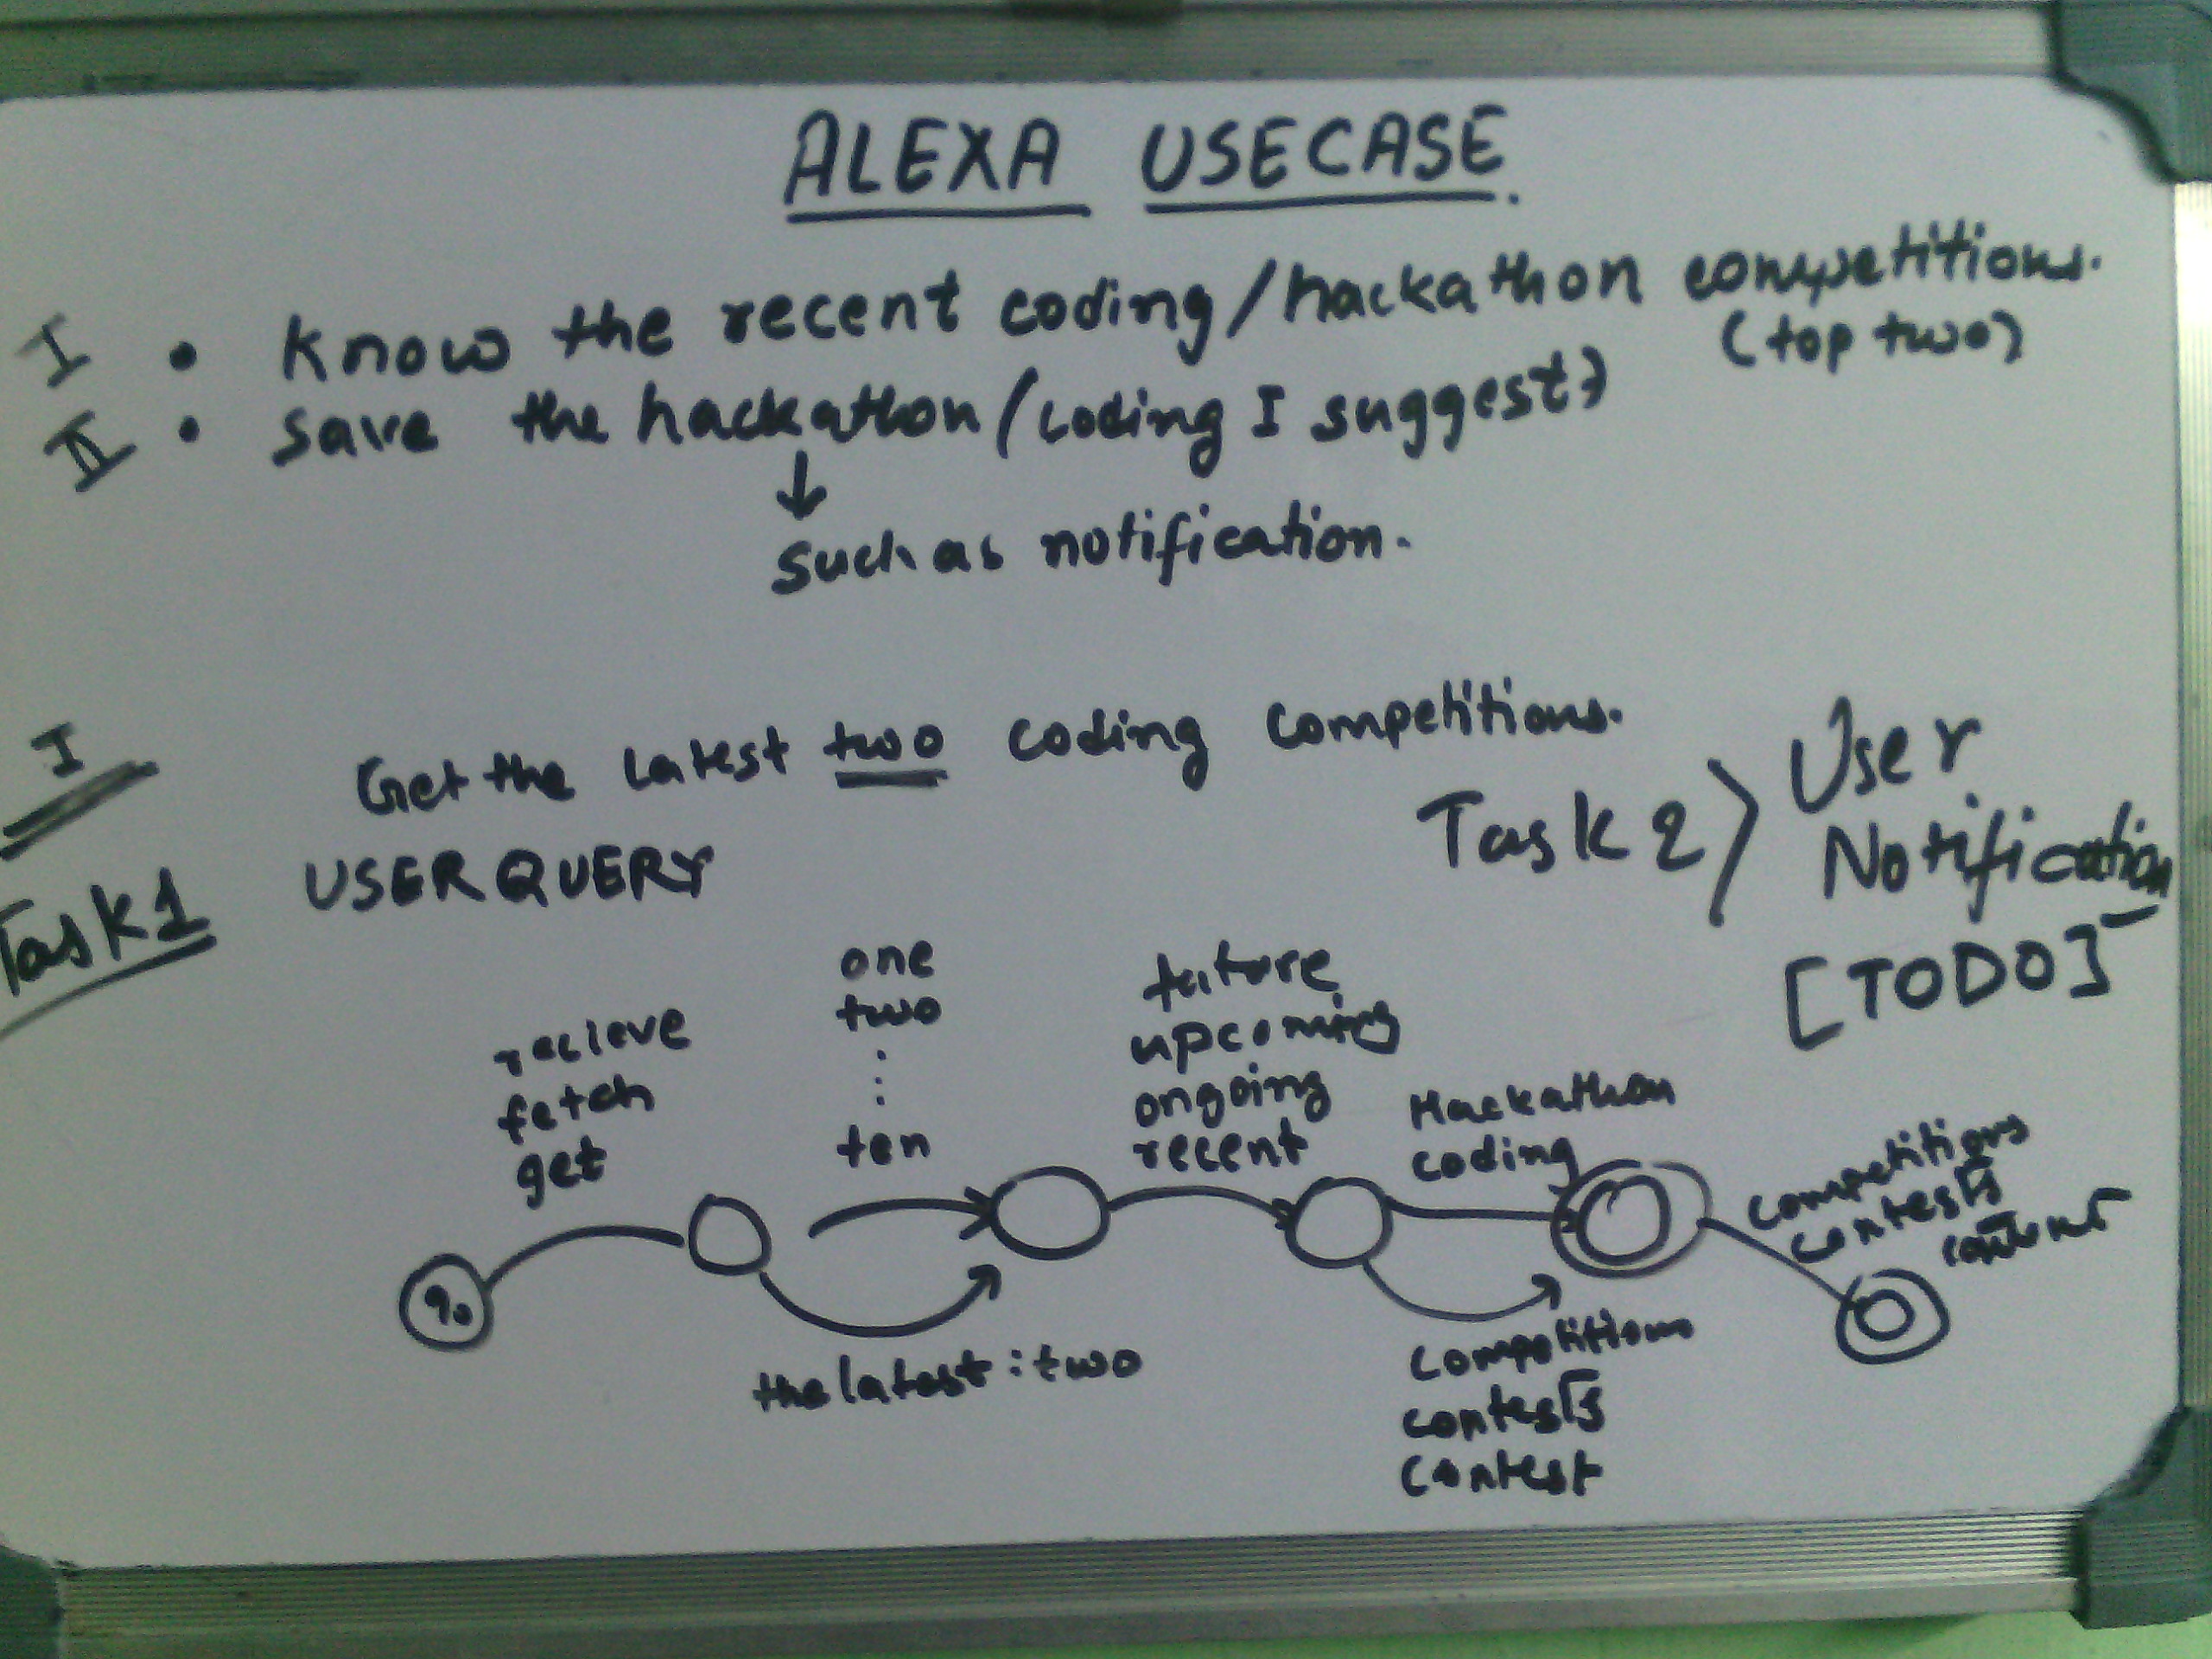 ALEXA USECASE.
I • Know the recent coding/hackathon competitions.
(top two)
II • Save the hackathon/(coding I suggest)
↓
Such as notification.
I
Get the latest two coding competitions.
Task 1
USER QUERY
Task 2 > User
Notification
[TODO]
recieve
fetch
get
one
two
:
:
ten
future
upcoming
ongoing
recent
Hackathon
coding
competitions
contests
q0
the latest : two
Competitions
contests
contest